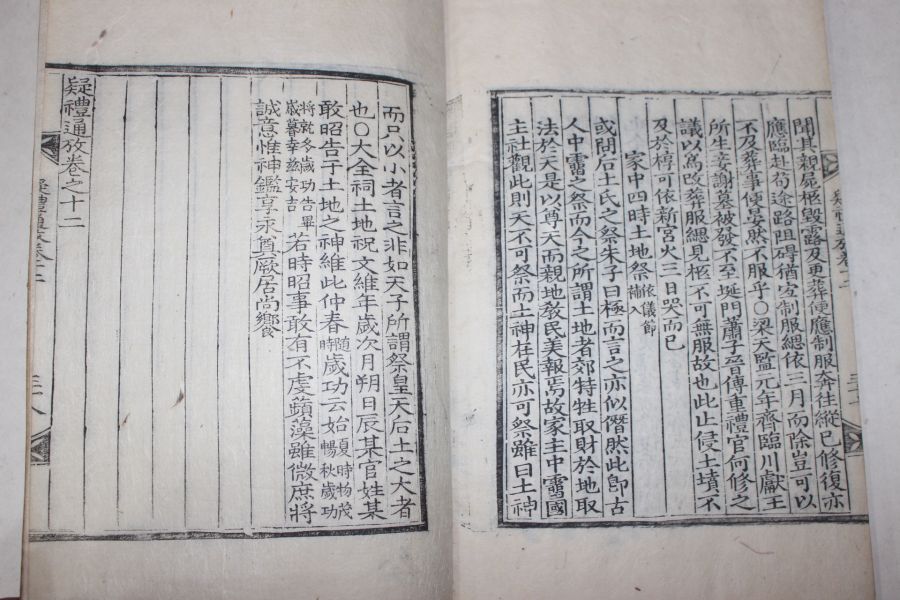 聞其親屍柩毀露及更葬便應制服奔往縱已修復亦
應臨赴苟途路阻碍猶宜制服緦依三月而除豈可以
不及葬事便晏然不服乎○梁天監元年齊臨川獻王
所生妾謝墓被發不至埏門蕭子晉傳重禮官何修之
議以爲改葬服緦見柩不可無服故也此止侵土墳不
及於椁可依新宮火三日哭而已
家中四時土地祭依儀節補入
或問后土氏之祭朱子曰極而言之亦似僭然此卽古
人中霤之祭而今之所謂土地者郊特牲取財於地取
法於天是以尊天而親地教民美報焉故家主中霤國
主社觀此則天不可祭而土神在民亦可祭雖曰土神
而只以小者言之非如天子所謂祭皇天后土之大者
也○大全祠土地祝文維年歲次月朔日辰某官姓某
敢昭告于土地之神維此仲春隨時歲功云始夏時物茂暢秋歲功
將就冬歲功告畢歲暮幸玆安吉若時昭事敢有不虔蘋藻雖微庶將
誠意惟神鑑享永奠厥居尚饗
疑禮通攷卷之十二